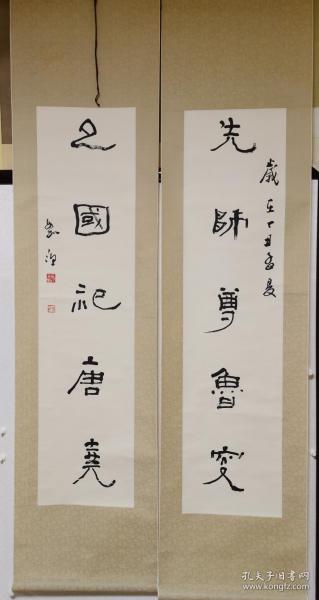 先師尊魯變
歲在丁丑孟夏
之國祀唐堯
孔夫子旧书网
www.kongfz.com